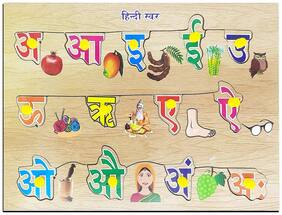 हिन्दी स्वर
अ आ इ ई उ
ऊ ऋ ए ऐ
ओ औ अं अः